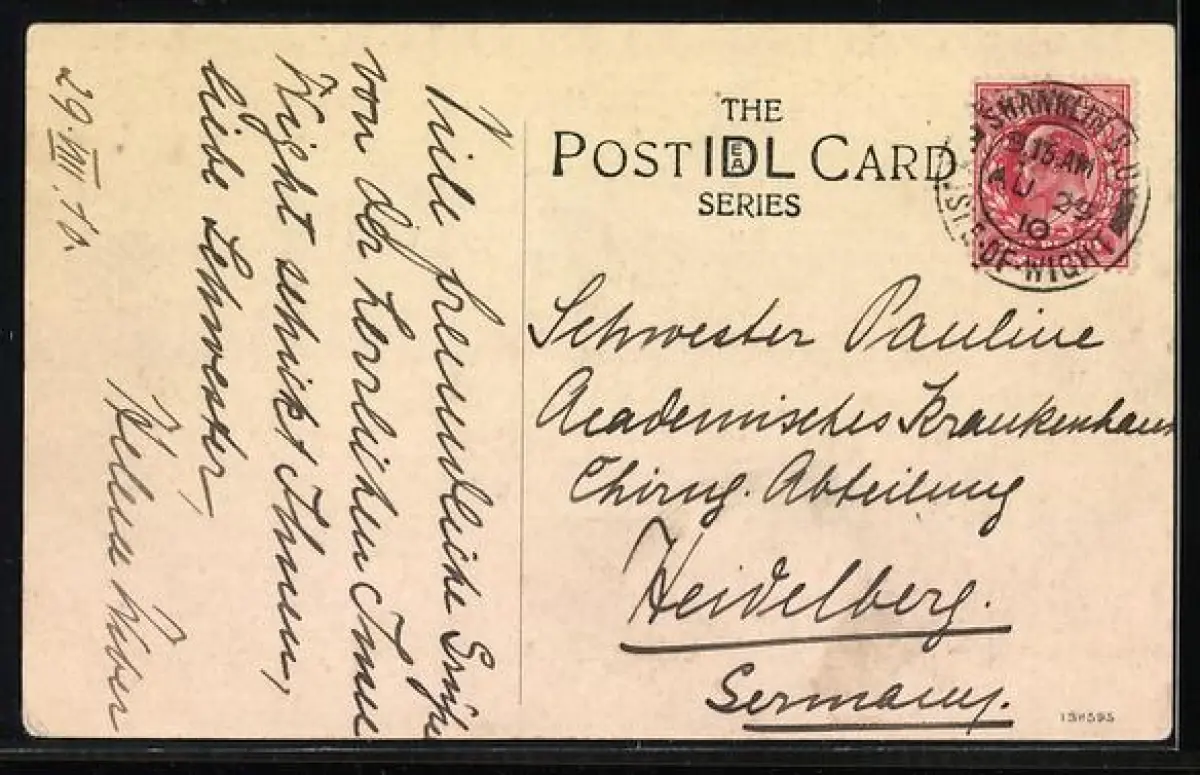 THE
POST IDEAL CARD
SERIES
SHANKLIN S.O.
8.15 AM
AU 29
10
ISLE-OF-WIGHT
Viele freundliche Grüße
von der herrlichen Insel
Wight schickt Ihnen,
liebe Schwester,
Helene Weber
29.VIII.10.
Schwester Pauline
Academisches Krankenhaus
Chirug. Abteilung
Heidelberg.
Germany.